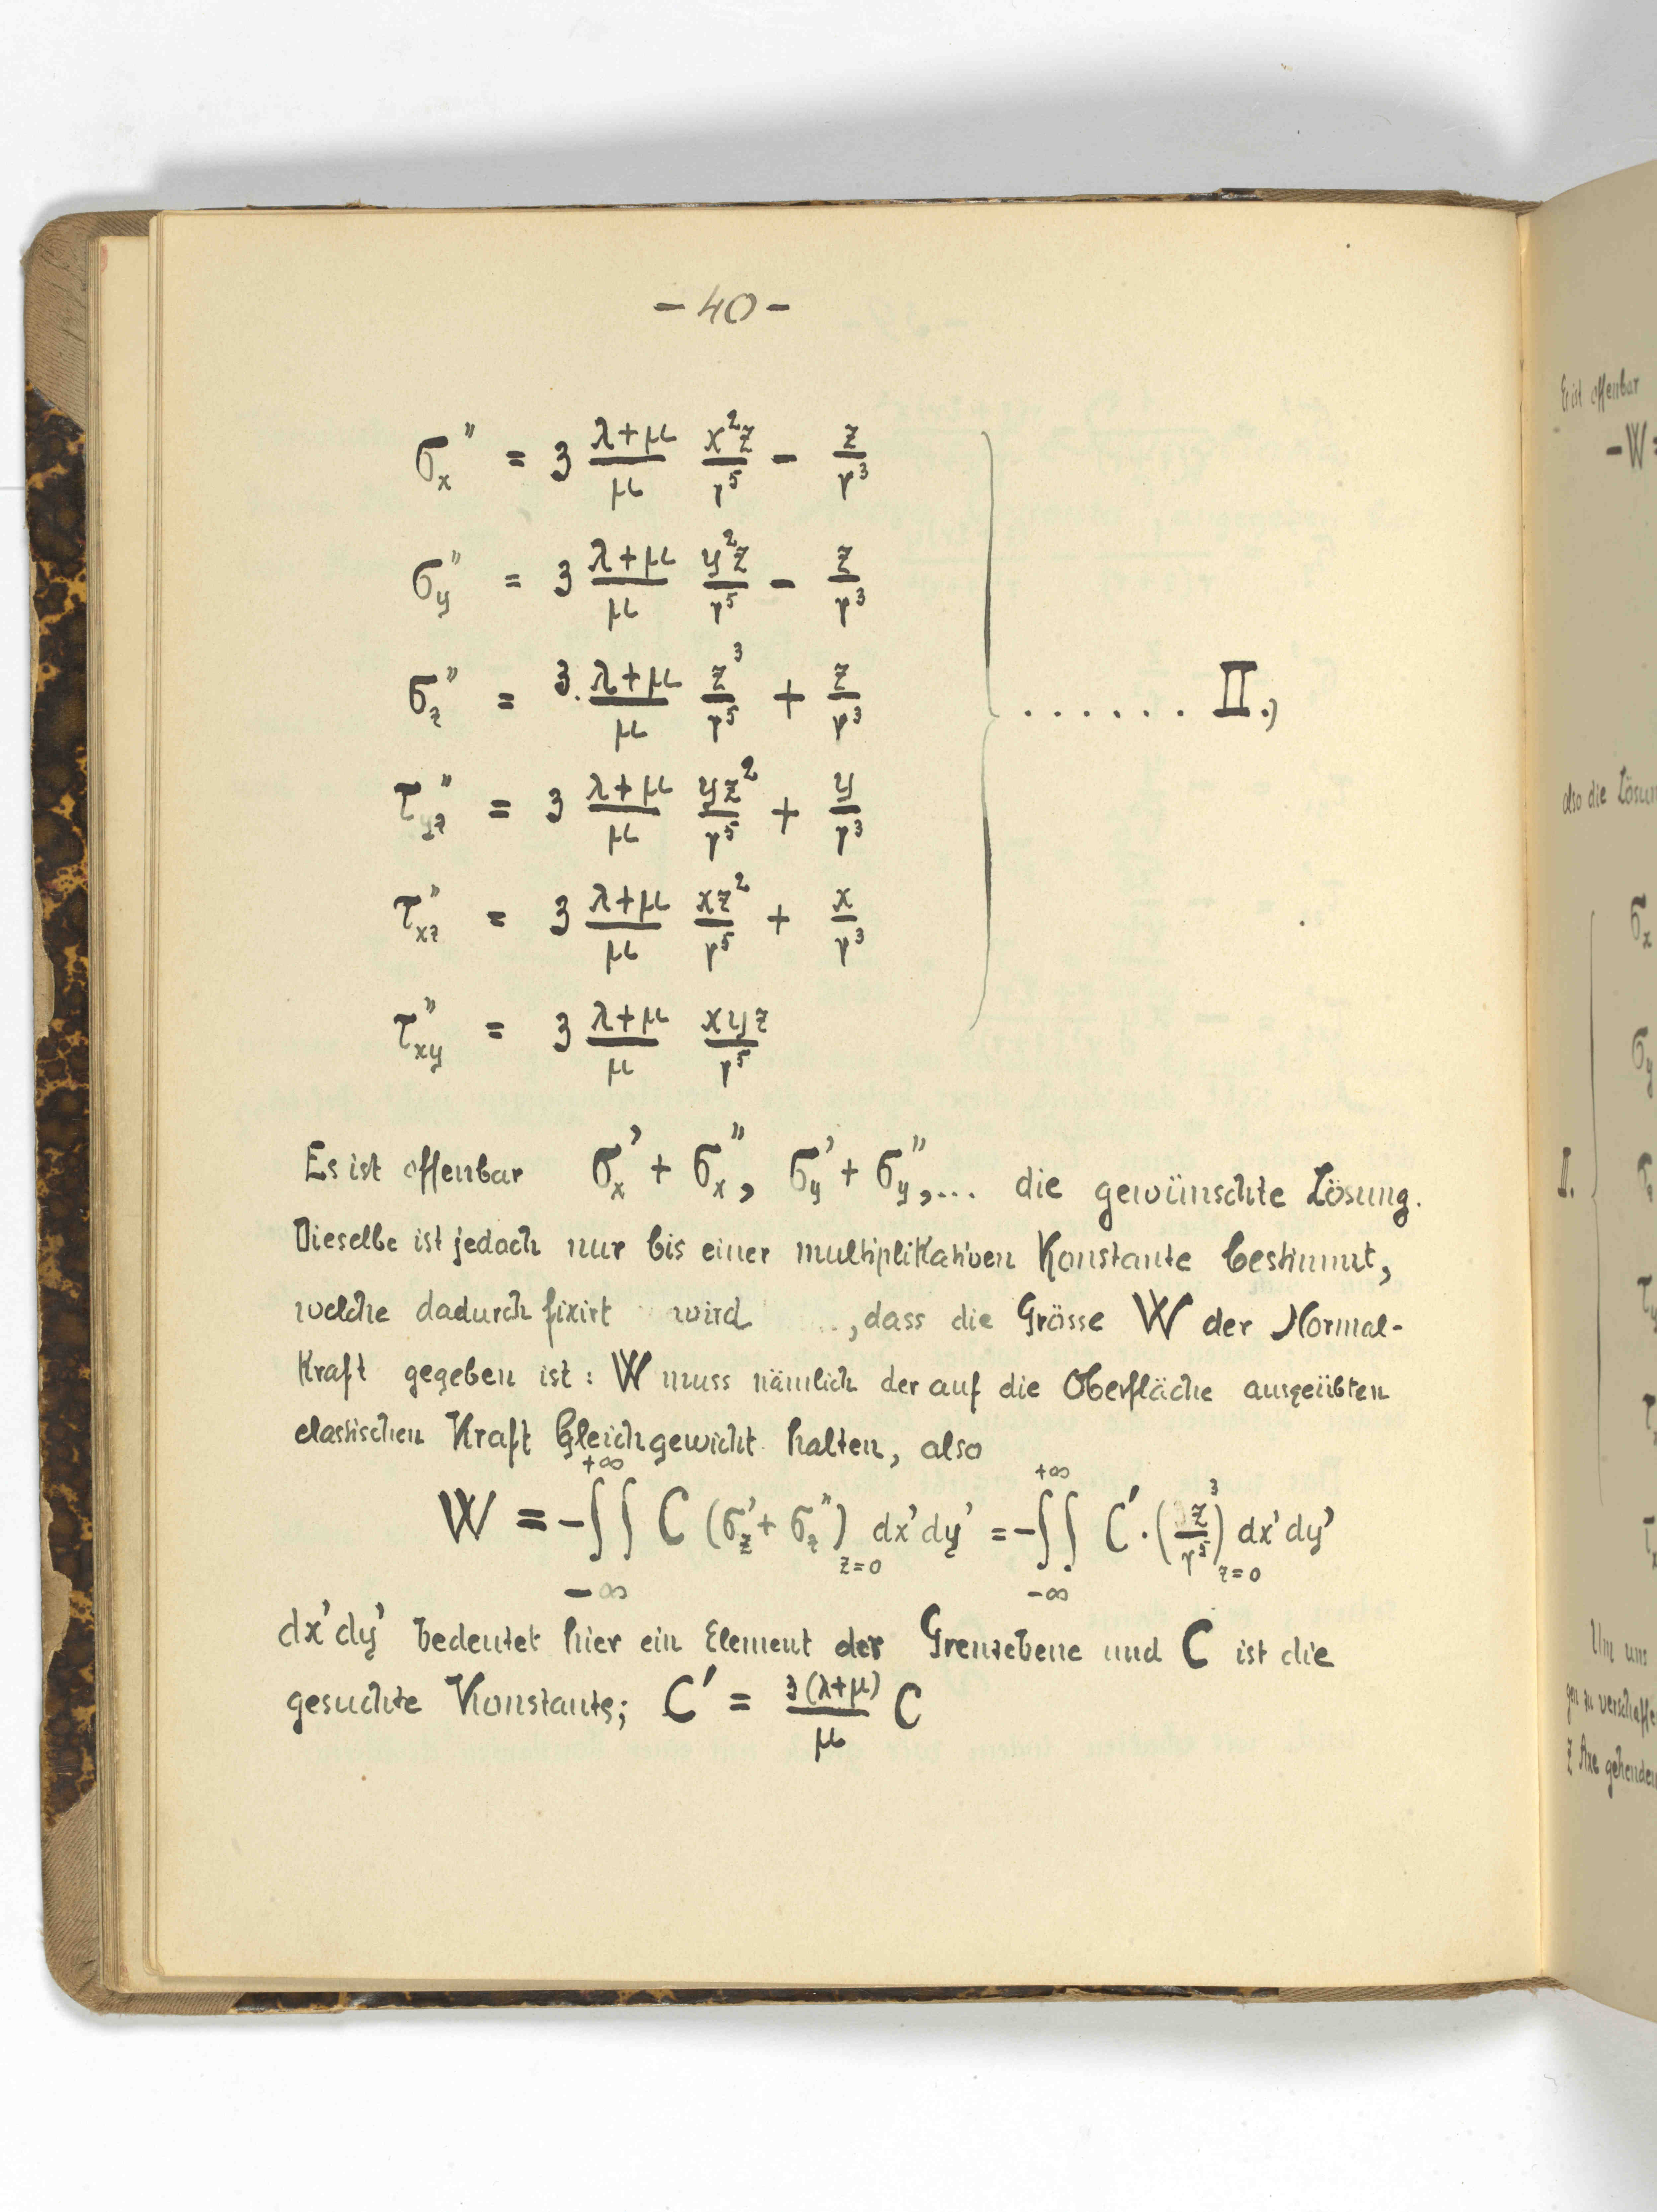 - 40 -
σₓ'' = 3 (λ+μ)/μ x²z/r⁵ - z/r³
σ_y'' = 3 (λ+μ)/μ y²z/r⁵ - z/r³
σ_z'' = 3. (λ+μ)/μ z³/r⁵ + z/r³ ...... II.)
τ_yz'' = 3 (λ+μ)/μ yz²/r⁵ + y/r³
τ_xz'' = 3 (λ+μ)/μ xz²/r⁵ + x/r³
τ_xy'' = 3 (λ+μ)/μ xyz/r⁵
Es ist offenbar σₓ' + σₓ'', σ_y' + σ_y'',... die gewünschte Lösung.
Dieselbe ist jedoch nur bis einer multiplikativen Konstante bestimmt,
welche dadurch fixirt wird ..., dass die Grösse W der Normal-
Kraft gegeben ist: W muss nämlich der auf die Oberfläche ausgeübten
elastischen Kraft Gleichgewicht halten, also
W = -∫∫_{-∞}^{+∞} C (σ_z' + σ_z'')_{z=0} dx'dy' = -∫∫_{-∞}^{+∞} C'·(z³/r⁵)_{z=0} dx'dy'
dx'dy' bedeutet hier ein Element der Grenzebene und C ist die
gesuchte Konstante; C' = 3(λ+μ)/μ C
Es ist offenbar
-W =
also die Lösun
σₓ
σ_y
II.
Um uns
gen zu verschaffe
Z Axe gehenden